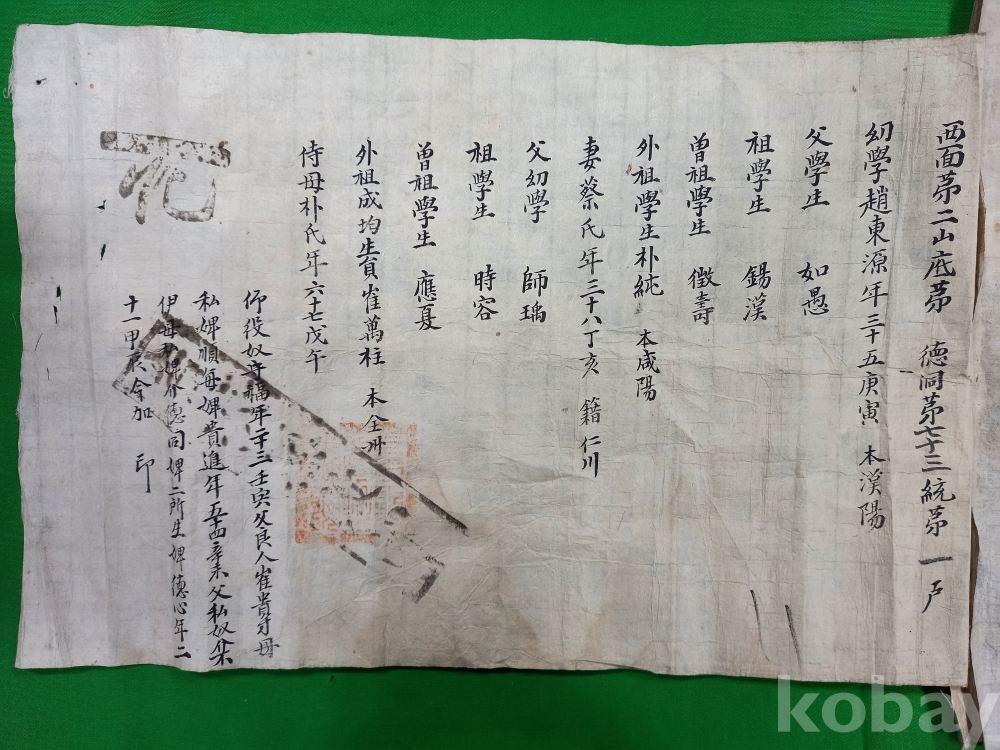 西面第二山底第 德洞第七十三統第一戶
幼學趙東源年三十五庚寅 本漢陽
父學生 如愚
祖學生 錫漢
曾祖學生 徵壽
外祖學生朴純 本咸陽
妻蔡氏年三十八丁亥 籍仁川
父幼學 師瑀
祖學生 時容
曾祖學生 應夏
外祖成均生員崔萬柱 本全州
侍母朴氏年六十七戊午
仰役奴 福年二十三壬寅父良人崔貴才母
私婢順每婢貴進年五十四辛未父私奴
伊母私婢 德同婢二所生婢德心年二
十一甲辰 加 印
kobay